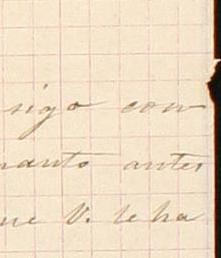 sigo con
uanto antes
ue V. le ha